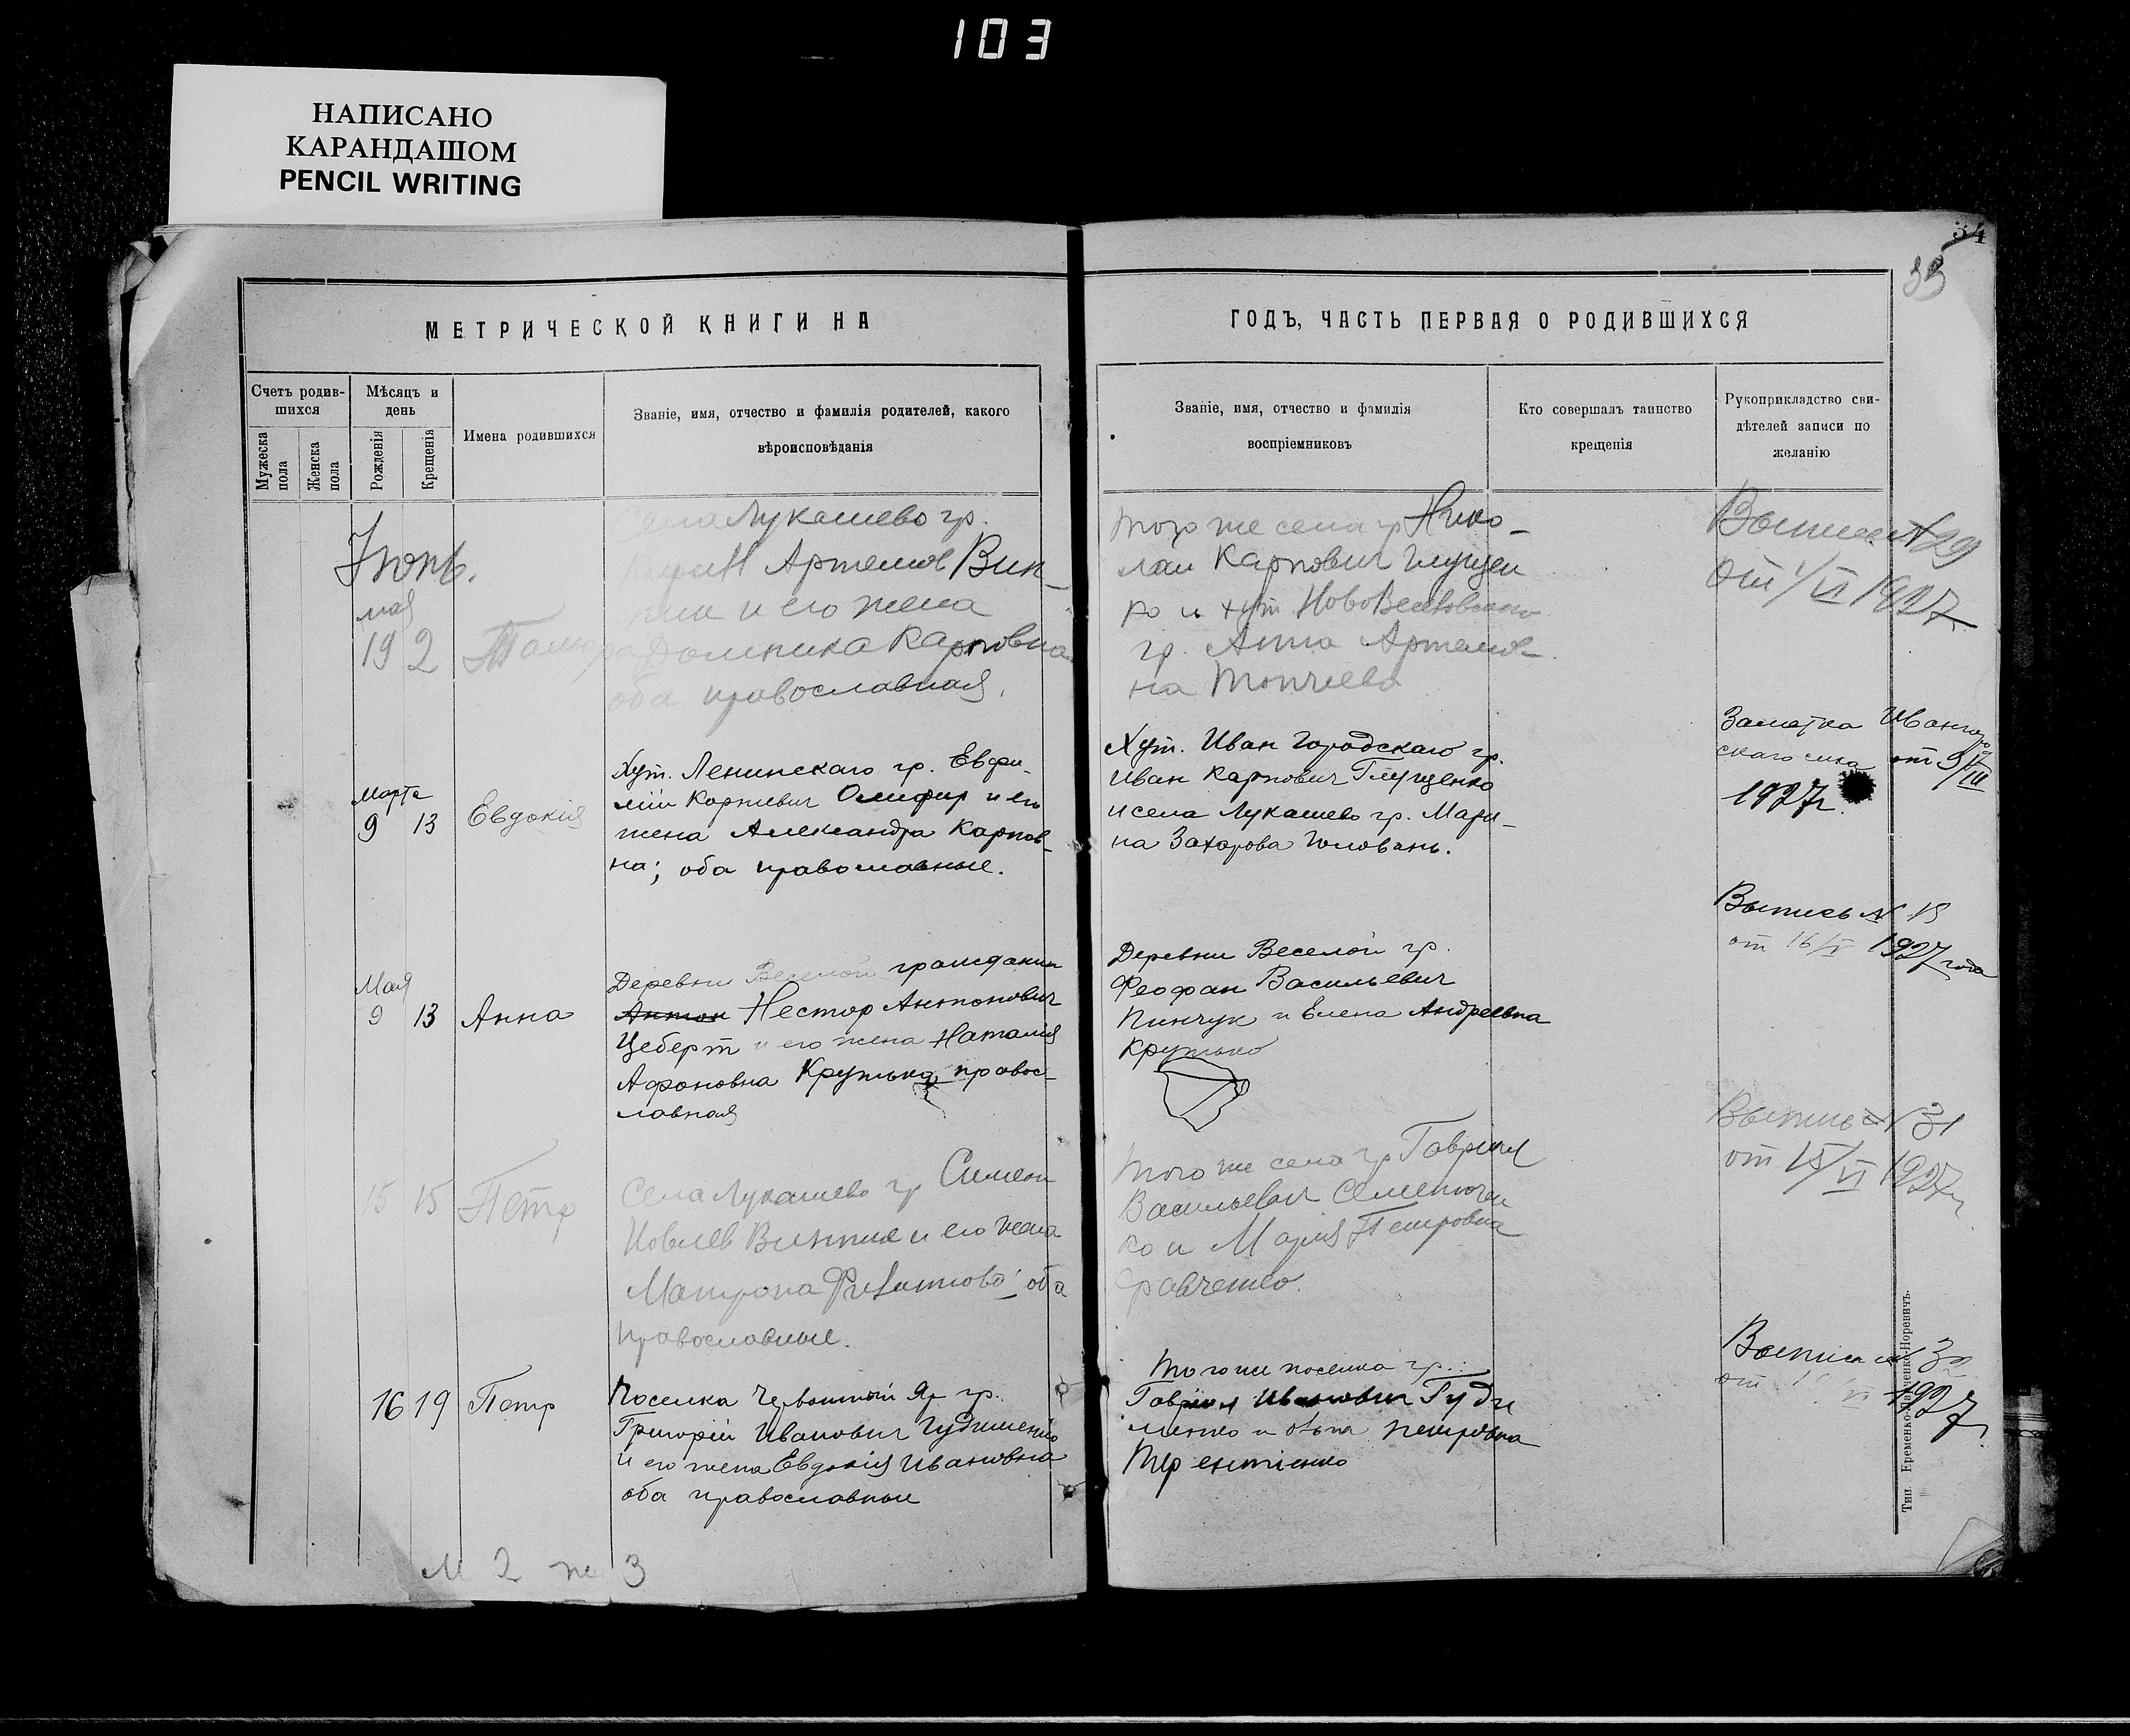 103
НАПИСАНО
КАРАНДАШОМ
PENCIL WRITING
34
МЕТРИЧЕСКОЙ КНИГИ НА
ГОДЪ, ЧАСТЬ ПЕРВАЯ О РОДИВШИХСЯ
Счетъ родив-
шихся
Мужеска пола
Женска пола
Мѣсяцъ и
день
Рожденія
Крещенія
Имена родившихся
Званіе, имя, отчество и фамилія родителей, какого
вѣроисповѣданія
Званіе, имя, отчество и фамилія
воспріемниковъ
Кто совершалъ таинство
крещенія
Рукоприкладство сви-
дѣтелей записи по
желанію
Июнь.
мая
19 2
Тамара
Села Лукашево гр.
Артемов Вин-
ник и его жена
Домникa Карповна
оба православная.
того же села гр Нико-
лай Карпович Глущен
ко и хут
гр. Анна Артемов-
на
Выпись № 29
от 1/VI 1927
марта
9 13
Евдокія
Хут. Ленинскаго гр. Евфи-
мій Корниевич и его
жена Александра Карпов-
на; оба православные.
Хут. Иван Городскаго гр.
Иван Карпович Глущенко
и села Лукашево гр. Мари-
на Захарова Головань.
Заметка Ивангород
скаго от 9/III
1927г.
Мая
9 13
Анна
Деревни Веселой гражданин
Антон Нестор Антонович
Цеберт и его жена Наталія
Афоновна Крутько, правос-
лавная
Деревни Веселой гр.
Феофан Васильевич
Пинчук и Елена Андреевна
Крутько
Выпись №
от 16/V 1927 года
15 15
Петр
Села Лукашево гр Симеон
Винник и его жена
Матрона оба
православные.
того же села гр Гавриил
Васильевич Семенючен
ко и Марія Петровна
Выпись № 31
от 15/VI 1927г
16 19
Петр
Поселка Червонный Яр гр.
Григорій Иванович Гудименко
и его жена Евдокія Ивановна
оба православные
Того же поселка гр.:
Гавриил Иванович Гуди
менко и Петровна
Терентіенко
Выпись № 32
от VI 1927
М 2 ж 3
Тип. Еременко-Марченко-Норевичъ.